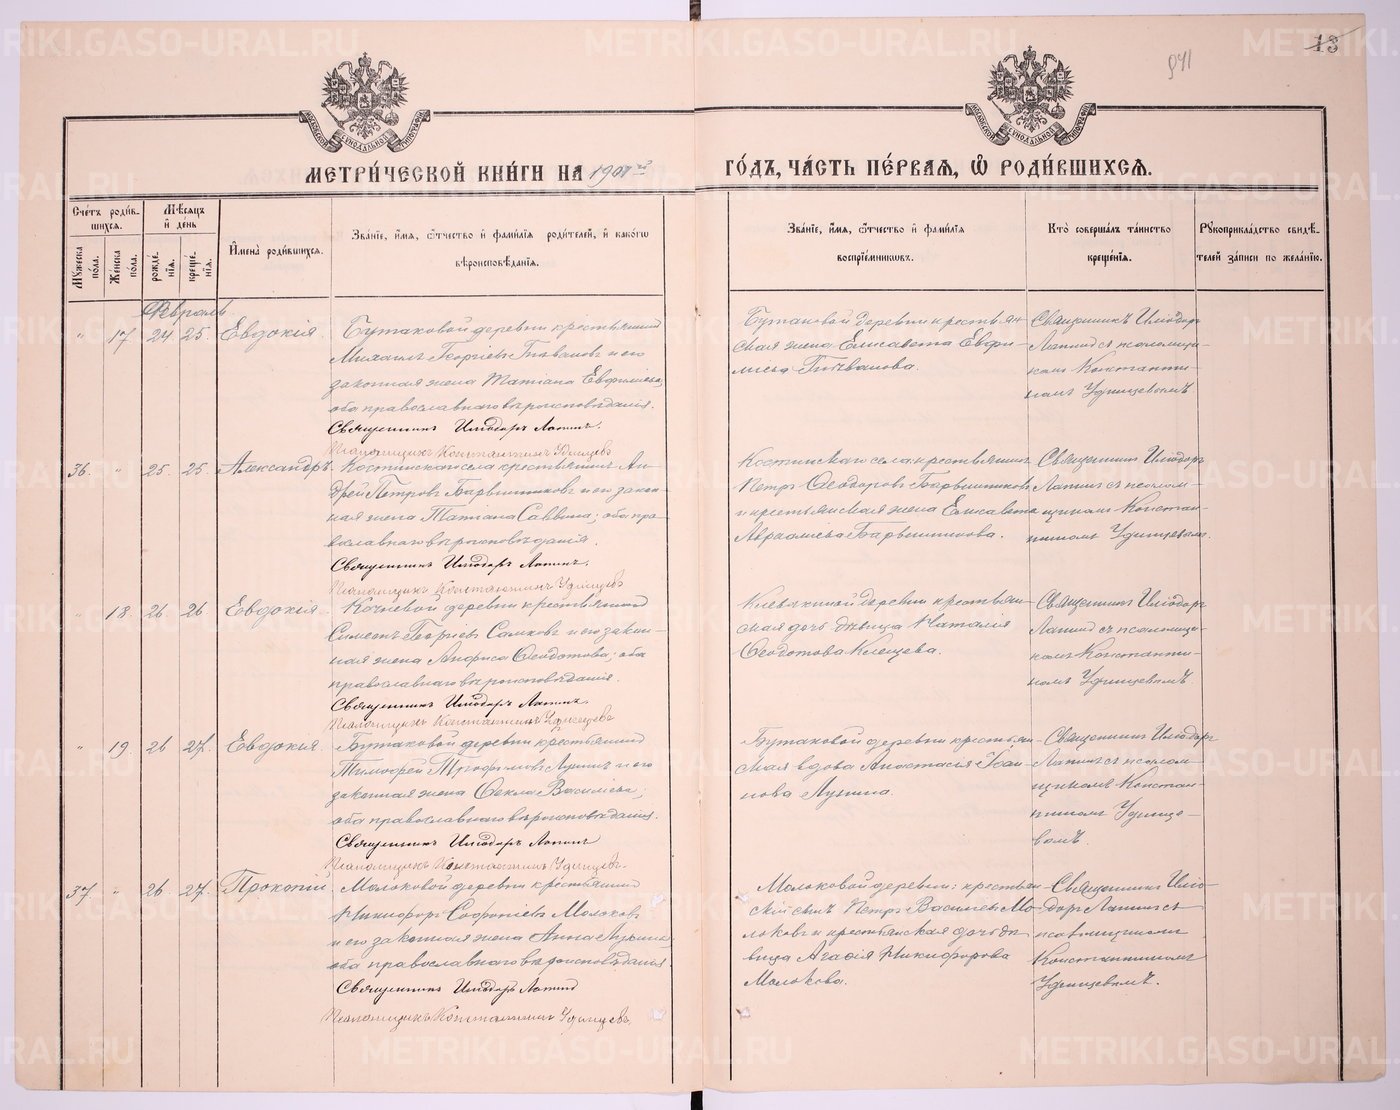 13
941
МОСКОВСКОЙ СУНОДАЛЬНОЙ ТИПОГРАФІИ
МОСКОВСКОЙ СУНОДАЛЬНОЙ ТИПОГРАФІИ
МЕТРИ́ЧЕСКОЙ КНИ́ГИ НА 1901 й
ГО́ДЪ, ЧА́СТЬ ПЕ́РВАЯ, Ѽ РОДИ́ВШИХСЯ.
Сче́тъ роди́в-
шихся.
Му́жеска по́ла.
Же́нска по́ла.
Мѣ́сяцъ
и҆ де́нь
рожде́нія.
креще́нія.
И҆мена̀ роди́вшихся.
Зва́ніе, и҆́мя, ѻ҆́тчество и҆ фами́лія роди́телей, и҆ како́гѡ
вѣроисповѣ́данія.
Зва́ніе, и҆́мя, ѻ҆́тчество и҆ фами́лія
воспріе́мникѡвъ.
Кто̀ соверша́лъ та́инство
креще́нія.
Рꙋкоприкла́дство свидѣ́-
телей за́писи по жела́нію.
Февраль
" 17 24 25 Евдокія.
Бутаковой деревни крестьянинъ
Михаилъ Георгіевъ и его
законная жена Татіана Евфиміева,
оба православнаго вѣроисповѣданія.
Священникъ Иліодоръ Лапинъ.
Псаломщикъ Константинъ Удинцевъ
Бутаковой деревни крестьян-
ская жена Елисавета Евфи-
міева
Священникъ Иліодоръ
Лапинъ съ псаломщи-
комъ Константи-
номъ Удинцевымъ.
36. " 25. 25. Александръ.
Костинскаго села крестьянинъ Ан-
дрей Петровъ Барышниковъ и его закон-
ная жена Татіана Саввина; оба пра-
вославнаго вѣроисповѣданія.
Священникъ Иліодоръ Лапинъ.
Псаломщикъ Константинъ Удинцевъ
Костинскаго села крестьянинъ
Петръ Ѳеодоровъ Барышниковъ
и крестьянская жена Елисавета
Авраамiева Барышникова.
Священникъ Иліодоръ
Лапинъ съ псалом-
щикомъ Констан-
тиномъ Удинцевымъ.
" 18. 26 26 Евдокія.
Кочневой деревни крестьянинъ
Симеонъ Георгіевъ и его закон-
ная жена Анфиса Ѳеодотова; оба
православнаго вѣроисповѣданія.
Священникъ Иліодоръ Лапинъ.
Псаломщикъ Константинъ Удинцевъ
Клевакиной деревни крестьян-
ская дочь дѣвица Наталія
Ѳеодотова Клещева.
Священникъ Иліодоръ
Лапинъ съ псаломщи-
комъ Константи-
номъ Удинцевымъ.
" 19. 26 27. Евдокія.
Бутаковой деревни крестьянинъ
Тимофей Трофимовъ Лукинъ и его
законная жена Ѳекла Васильева;
оба православнаго вѣроисповѣданія.
Священникъ Иліодоръ Лапинъ
Псаломщикъ Константинъ Удинцевъ.
Бутаковой деревни крестьян-
ская вдова Анастасія Іоан-
нова Лукина.
Священникъ Иліодоръ
Лапинъ съ псалом-
щикомъ Констан-
тиномъ Удинце-
вымъ.
37. " 26. 27. Прокопій.
Молоковой деревни крестьянинъ
Никифоръ Софоніевъ Молоковъ
и его законная жена Анна Лукина,
оба православнаго вѣроисповѣданія.
Священникъ Иліодоръ Лапинъ
Псаломщикъ Константинъ Удинцевъ.
Молоковой деревни: крестьян-
скій сынъ Петръ Васильевъ Мо-
локовъ и крестьянская дочь дѣ-
вица Агафія Никифорова
Молокова.
Священникъ Иліо-
доръ Лапинъ съ
псаломщикомъ
Константиномъ
Удинцевымъ.
METRIKI.GASO-URAL.RU